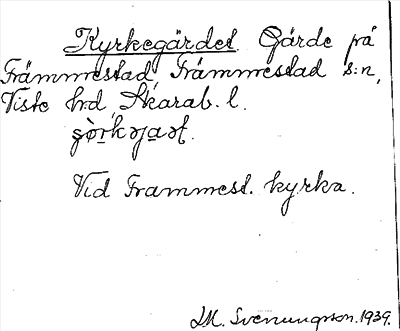 Kyrkegärdet. Gärde på
Främmestad, Främmestad s:n,
Viste hd, Skarab. l.
Vid Frammest. kyrka.
M. Svenungsson. 1939.